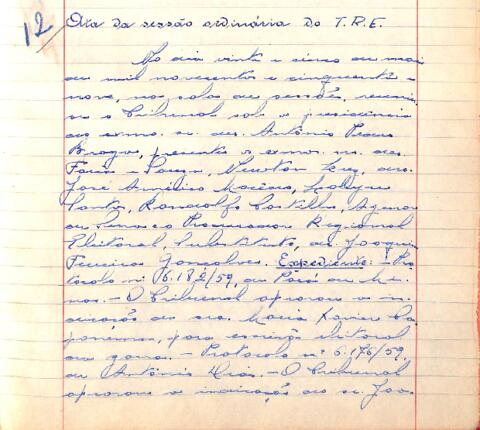 12
Ata da sessão ordinária do T.R.E.
No dia vinte e cinco de maio
de mil novecentos e cinquenta e
nove, na sala de sessões, reuniu-
se o Tribunal sob a presidência
do exmo. sr. des. Antônio Pedro
Braga, presentes os exmos. srs. des.
Faria e Souza, Newton Luz, drs.
José Américo Macedo,
Santos, Randolfo Castilho, Agenor
de Senna e Procurador Regional
Eleitoral, Substituto, dr. Joaquim
Ferreira Gonçalves. Expediente: - Pro-
tocolo nº 6.182/59, de Pará de Mi-
nas. - O Tribunal aprovou a in-
dicação da sra. Maria Xavier Ca-
panema, para escrivã eleitoral
da zona. - Protocolo nº 6.176/59,
de Antônio Dias. - O Tribunal
aprovou a indicação do sr. Joa-